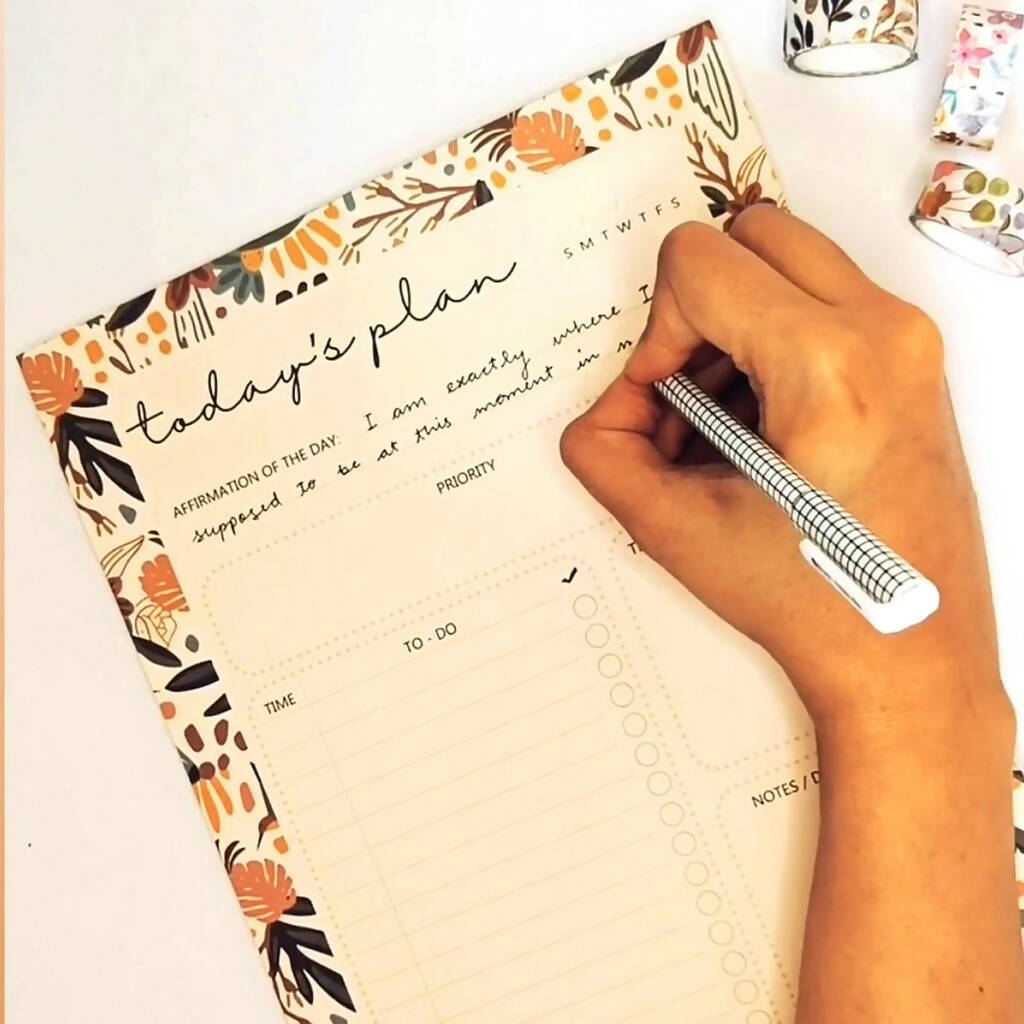 S M T W T F S
today's plan
AFFIRMATION OF THE DAY: I am exactly where I
supposed to be at this moment in
PRIORITY
TO - DO
TIME
NOTES /